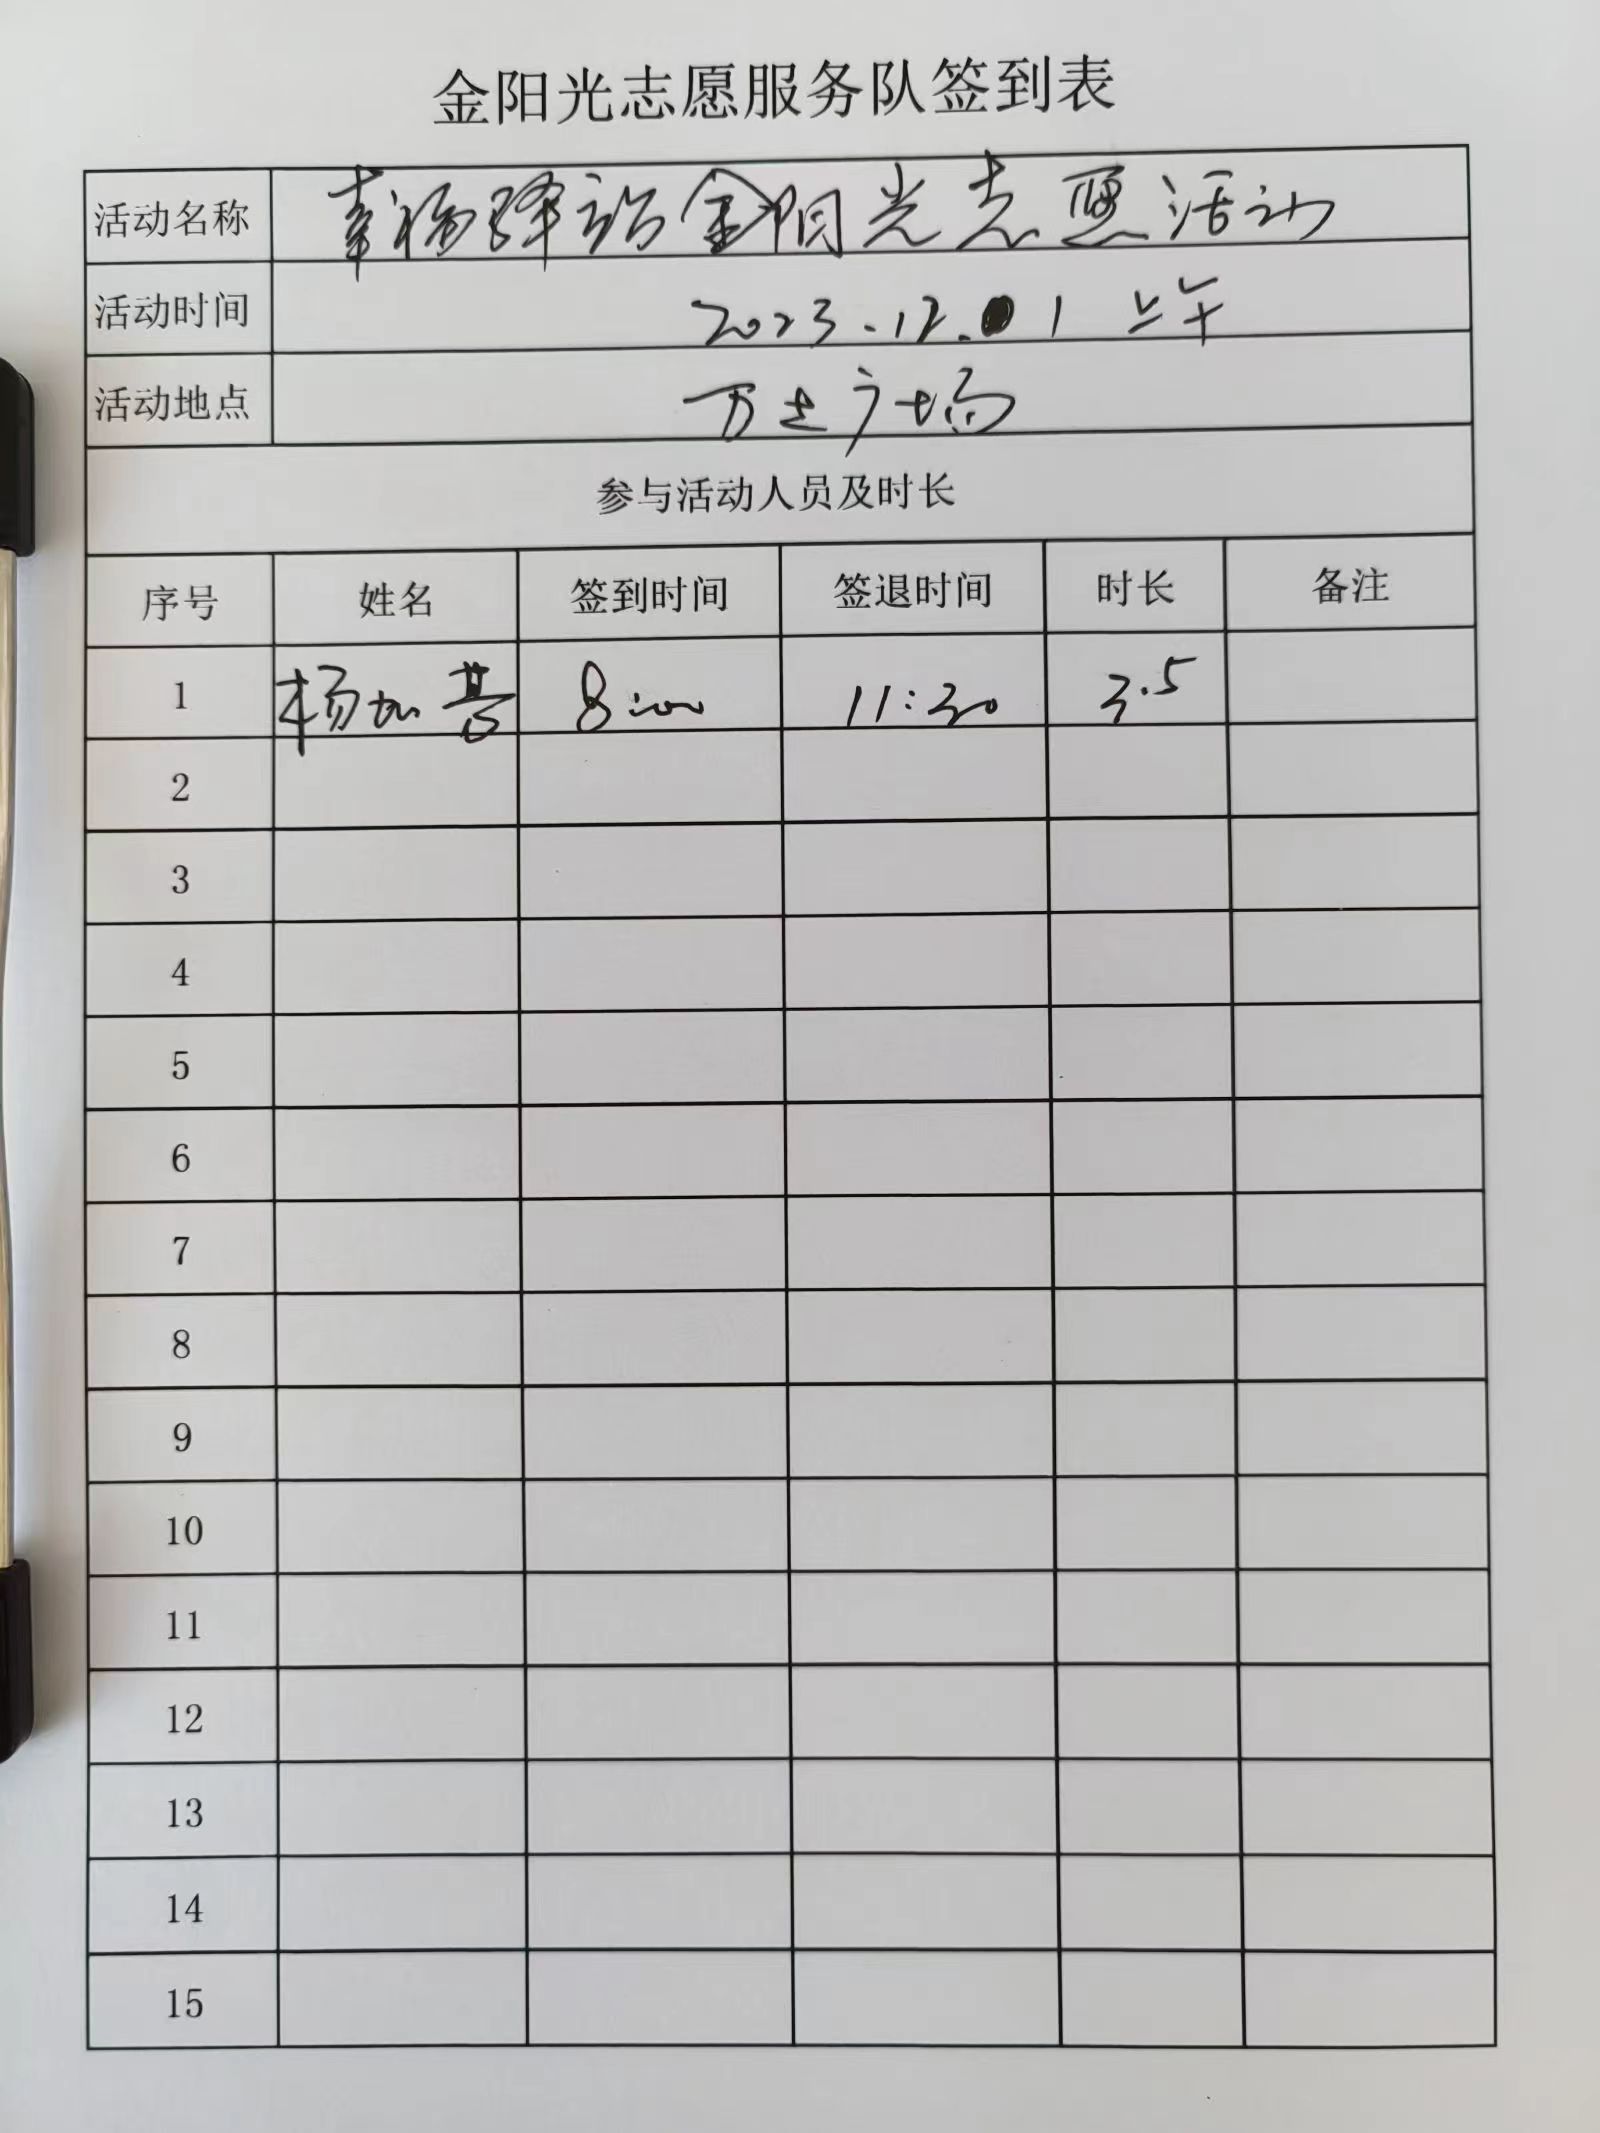 金阳光志愿服务队签到表
活动名称 幸福驿站金阳光志愿活动
活动时间 2023.12.01 上午
活动地点 万达广场
参与活动人员及时长
序号 姓名 签到时间 签退时间 时长 备注
1 杨加 8:00 11:30 3.5
2
3
4
5
6
7
8
9
10
11
12
13
14
15